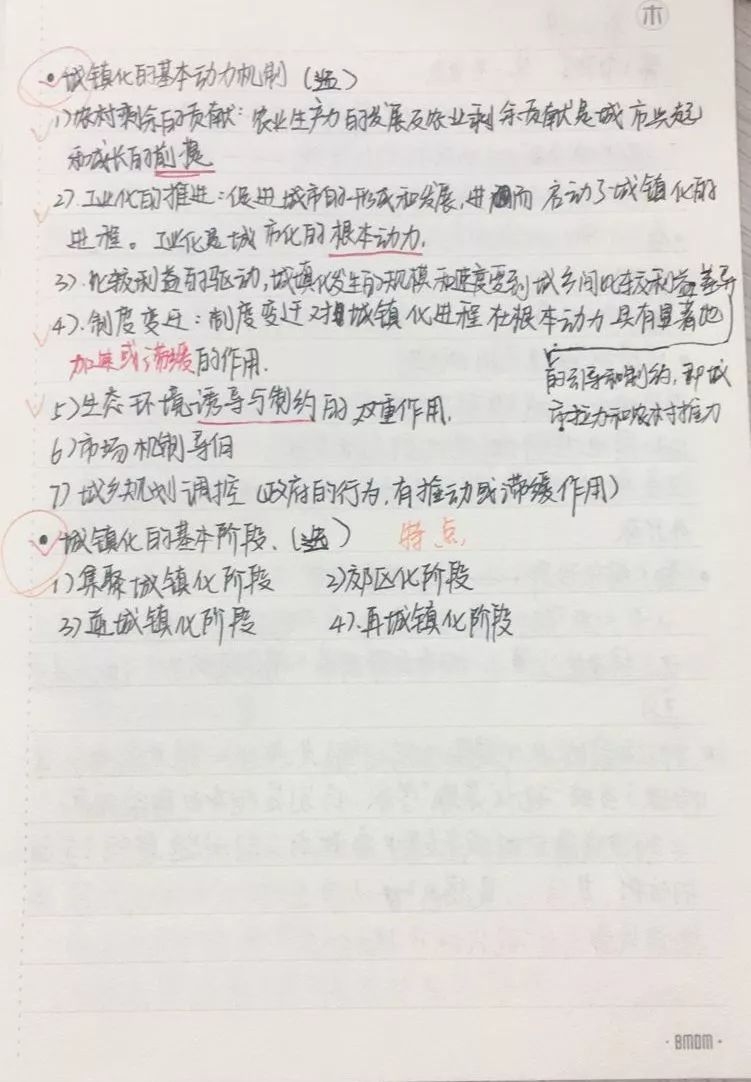 木
• 城镇化的基本动力机制（选）
1)农村剩余的贡献：农业生产力的发展及农业剩余贡献是城市兴起
和成长的前提
2).工业化的推进：促进城市的形成和发展,进而启动了城镇化的
进程。工业化是城市化的根本动力.
3).比较利益的驱动,城镇化发生的规模和速度受到城乡间比较利益差异
的引导和制约,即城
市拉力和农村推力
4).制度变迁：制度变迁对城镇化进程在根本动力具有显著地
加速或滞缓的作用.
5)生态环境诱导与制约的双重作用.
6)市场机制导向
7)城乡规划调控（政府的行为,有推动或滞缓作用）
• 城镇化的基本阶段.（选） 特点
1)集聚城镇化阶段 2)郊区化阶段
3)逆城镇化阶段 4).再城镇化阶段
· BMDM ·